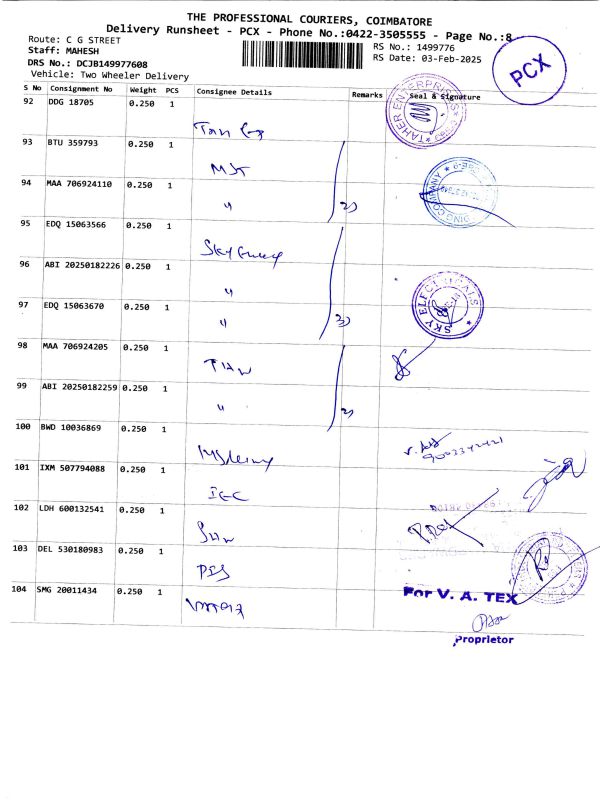 THE PROFESSIONAL COURIERS, COIMBATORE
Delivery Runsheet - PCX - Phone No.:0422-3505555 - Page No.:8
Route: C G STREET
RS No.: 1499776
Staff: MAHESH
RS Date: 03-Feb-2025
DRS No.: DCJB149977608
Vehicle: Two Wheeler Delivery
PCX
S No Consignment No Weight PCS Consignee Details Remarks Seal & Signature
92 DDG 18705 0.250 1
TAHER ENTERPRISES
93 BTU 359793 0.250 1
MJT
94 MAA 706924110 0.250 1
" 2)
COMPANY
95 EDQ 15063566 0.250 1
96 ABI 20250182226 0.250 1
"
97 EDQ 15063670 0.250 1
" 3)
SKY ELECTRICALS
98 MAA 706924205 0.250 1
99 ABI 20250182259 0.250 1
" 2)
100 BWD 10036869 0.250 1
101 IXM 507794088 0.250 1
102 LDH 600132541 0.250 1
103 DEL 530180983 0.250 1
104 SMG 20011434 0.250 1
For V. A. TEX
Proprietor